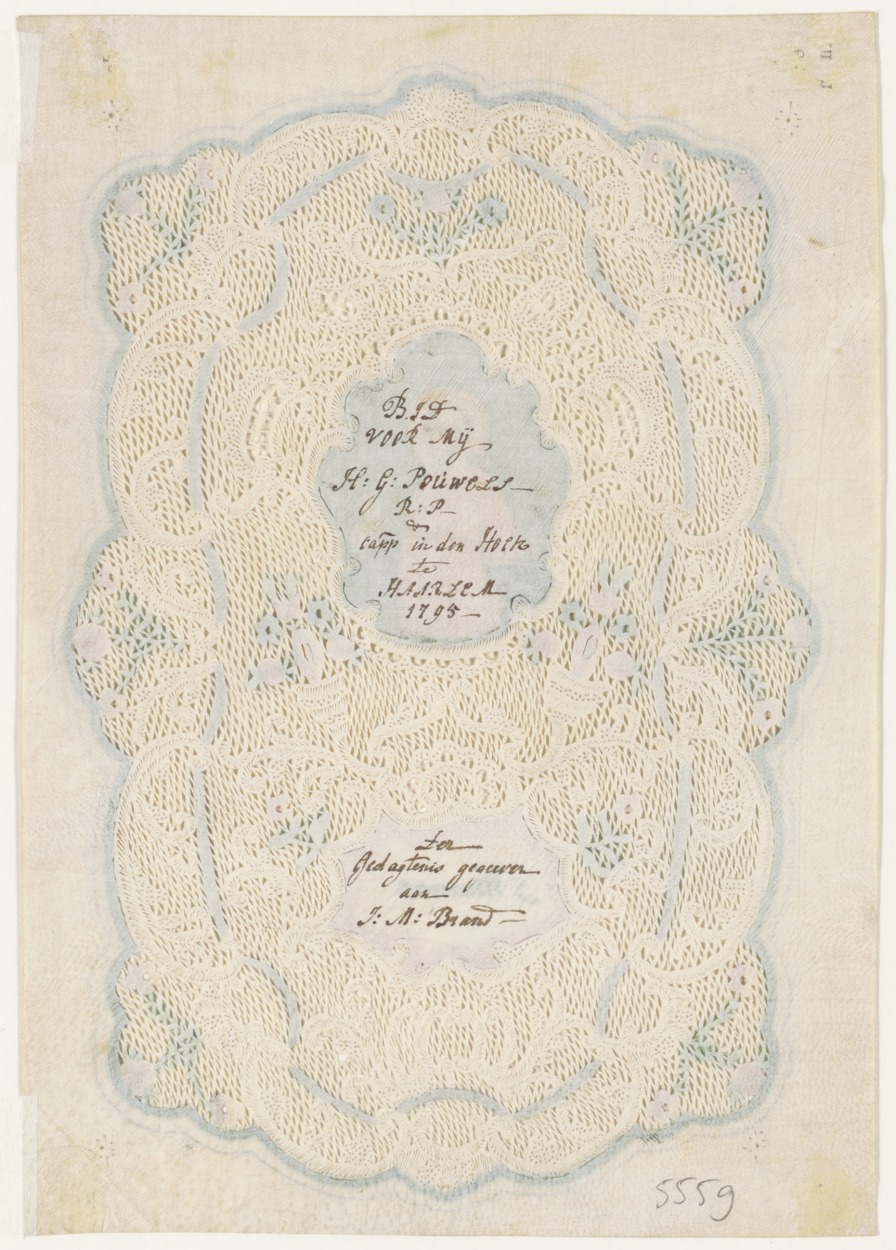 BID
VOOR Mÿ
H: G: Pouwels
R: P
&
capp in den Hoek
te
HAARLEM
1795
ter
Gedagtenis gegeven
aan
J: M: Brand
5559